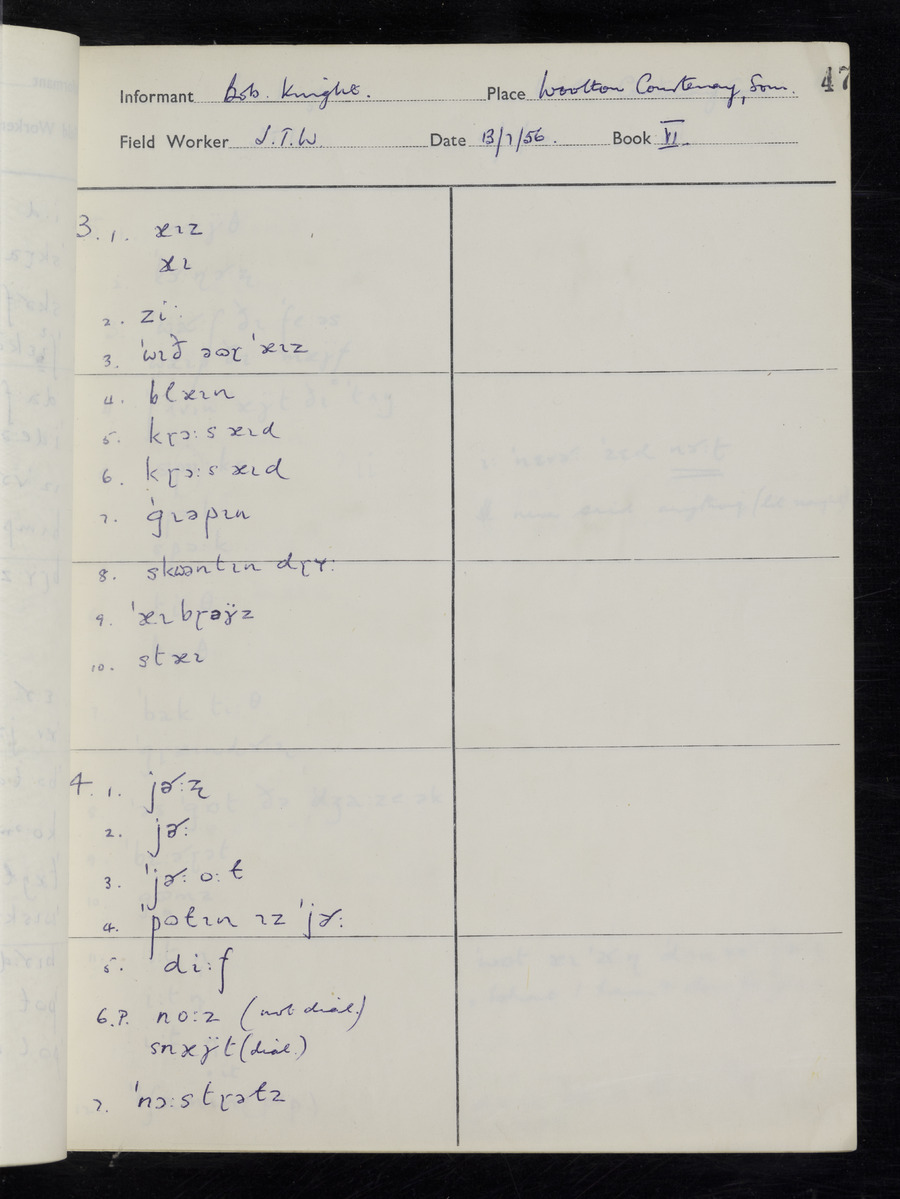 47
Informant Bob. Knight. Place Woolton Courtenay, Som.
Field Worker J.T.W. Date 13/7/56. Book VI.
3. 1. æɪz
æɪ
2. ziː
3. ˈwɪð əʊɽ ˈæɪz
4. blæɪn
5. kɽɔːs æɪd
6. kɽɔːs æɪd
7. ˈgɹəpɪn
8. skwəntɪn dɽʏː
9. ˈæɪbɽəʏ̈z
10. stæɪ
4. 1. jɚːʐ
2. jɚː
3. ˈjɚː oːt
4. ˈpɔtɪn ɪz ˈjɚː
5. diːf
6.P. noːz (not dial.)
snæʏ̈t (dial.)
7. ˈnɔːstɽətz